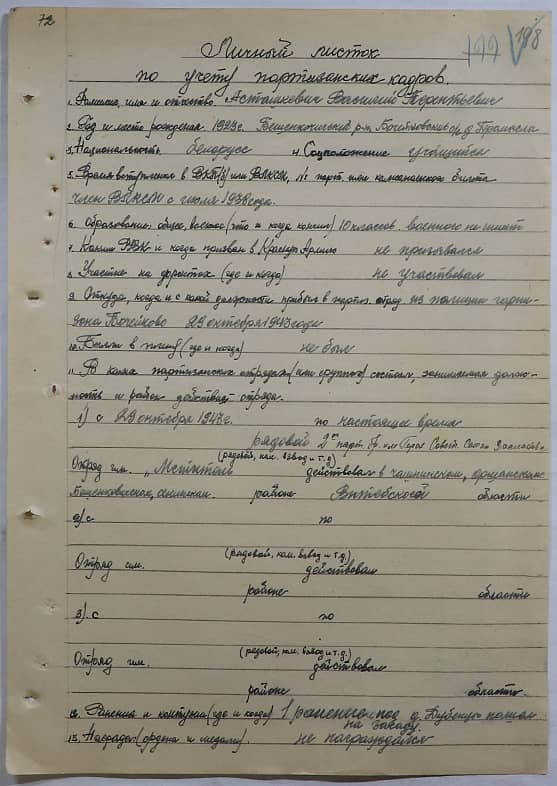 72
198
Личный листок
по учету партизанских кадров.
1. Фамилия, имя и отчество Асташкевич Василий Терентьевич
2. Год и место рождения 1923г. Бешенкичский р-н, Бочейковский с/с д.
3. Национальность белорусс 4. Соцположение учащийся
5. Время вступления в ВКП/б/ или ВЛКСМ, № парт. или комсомольского билета
член ВЛКСМ с июля 1938 года.
6. Образование: общее, военное (что и когда кончил) 10 классов. военного не имеет
7. Каким РВК и когда призван в Красную Армию не призывался
8. Участие на фронтах (где и когда) не участвовал
9. Откуда, когда и с какой должности прибыл в партиз. отряд из полиции гарни-
зона Бочейково 29 октября 1943 года
10. Был ли в плену (где и когда) не был
11. В каких партизанских отрядах (или группах) состоял, занимаемая долж-
ность и район действий отряда.
1) с 29 октября 1943г. по настоящее время
рядовой 2ой парт. бр. им. Героя Совет. Союза
(рядовой, ком. взвод и т.д.)
Отряд им. „ действовал в чашникском,
Бешенковичском, районе Витебской области
2) с по
(рядовой, ком. взвод и т.д.)
Отряд им. действовал
районе области
3) с по
(рядовой, ком. взвод и т.д.)
Отряд им. действовал
районе область.
12. Ранения и контузии (где и когда) 1 ранение под д.
на засаду.
13. Награды (ордена и медали). не награждался